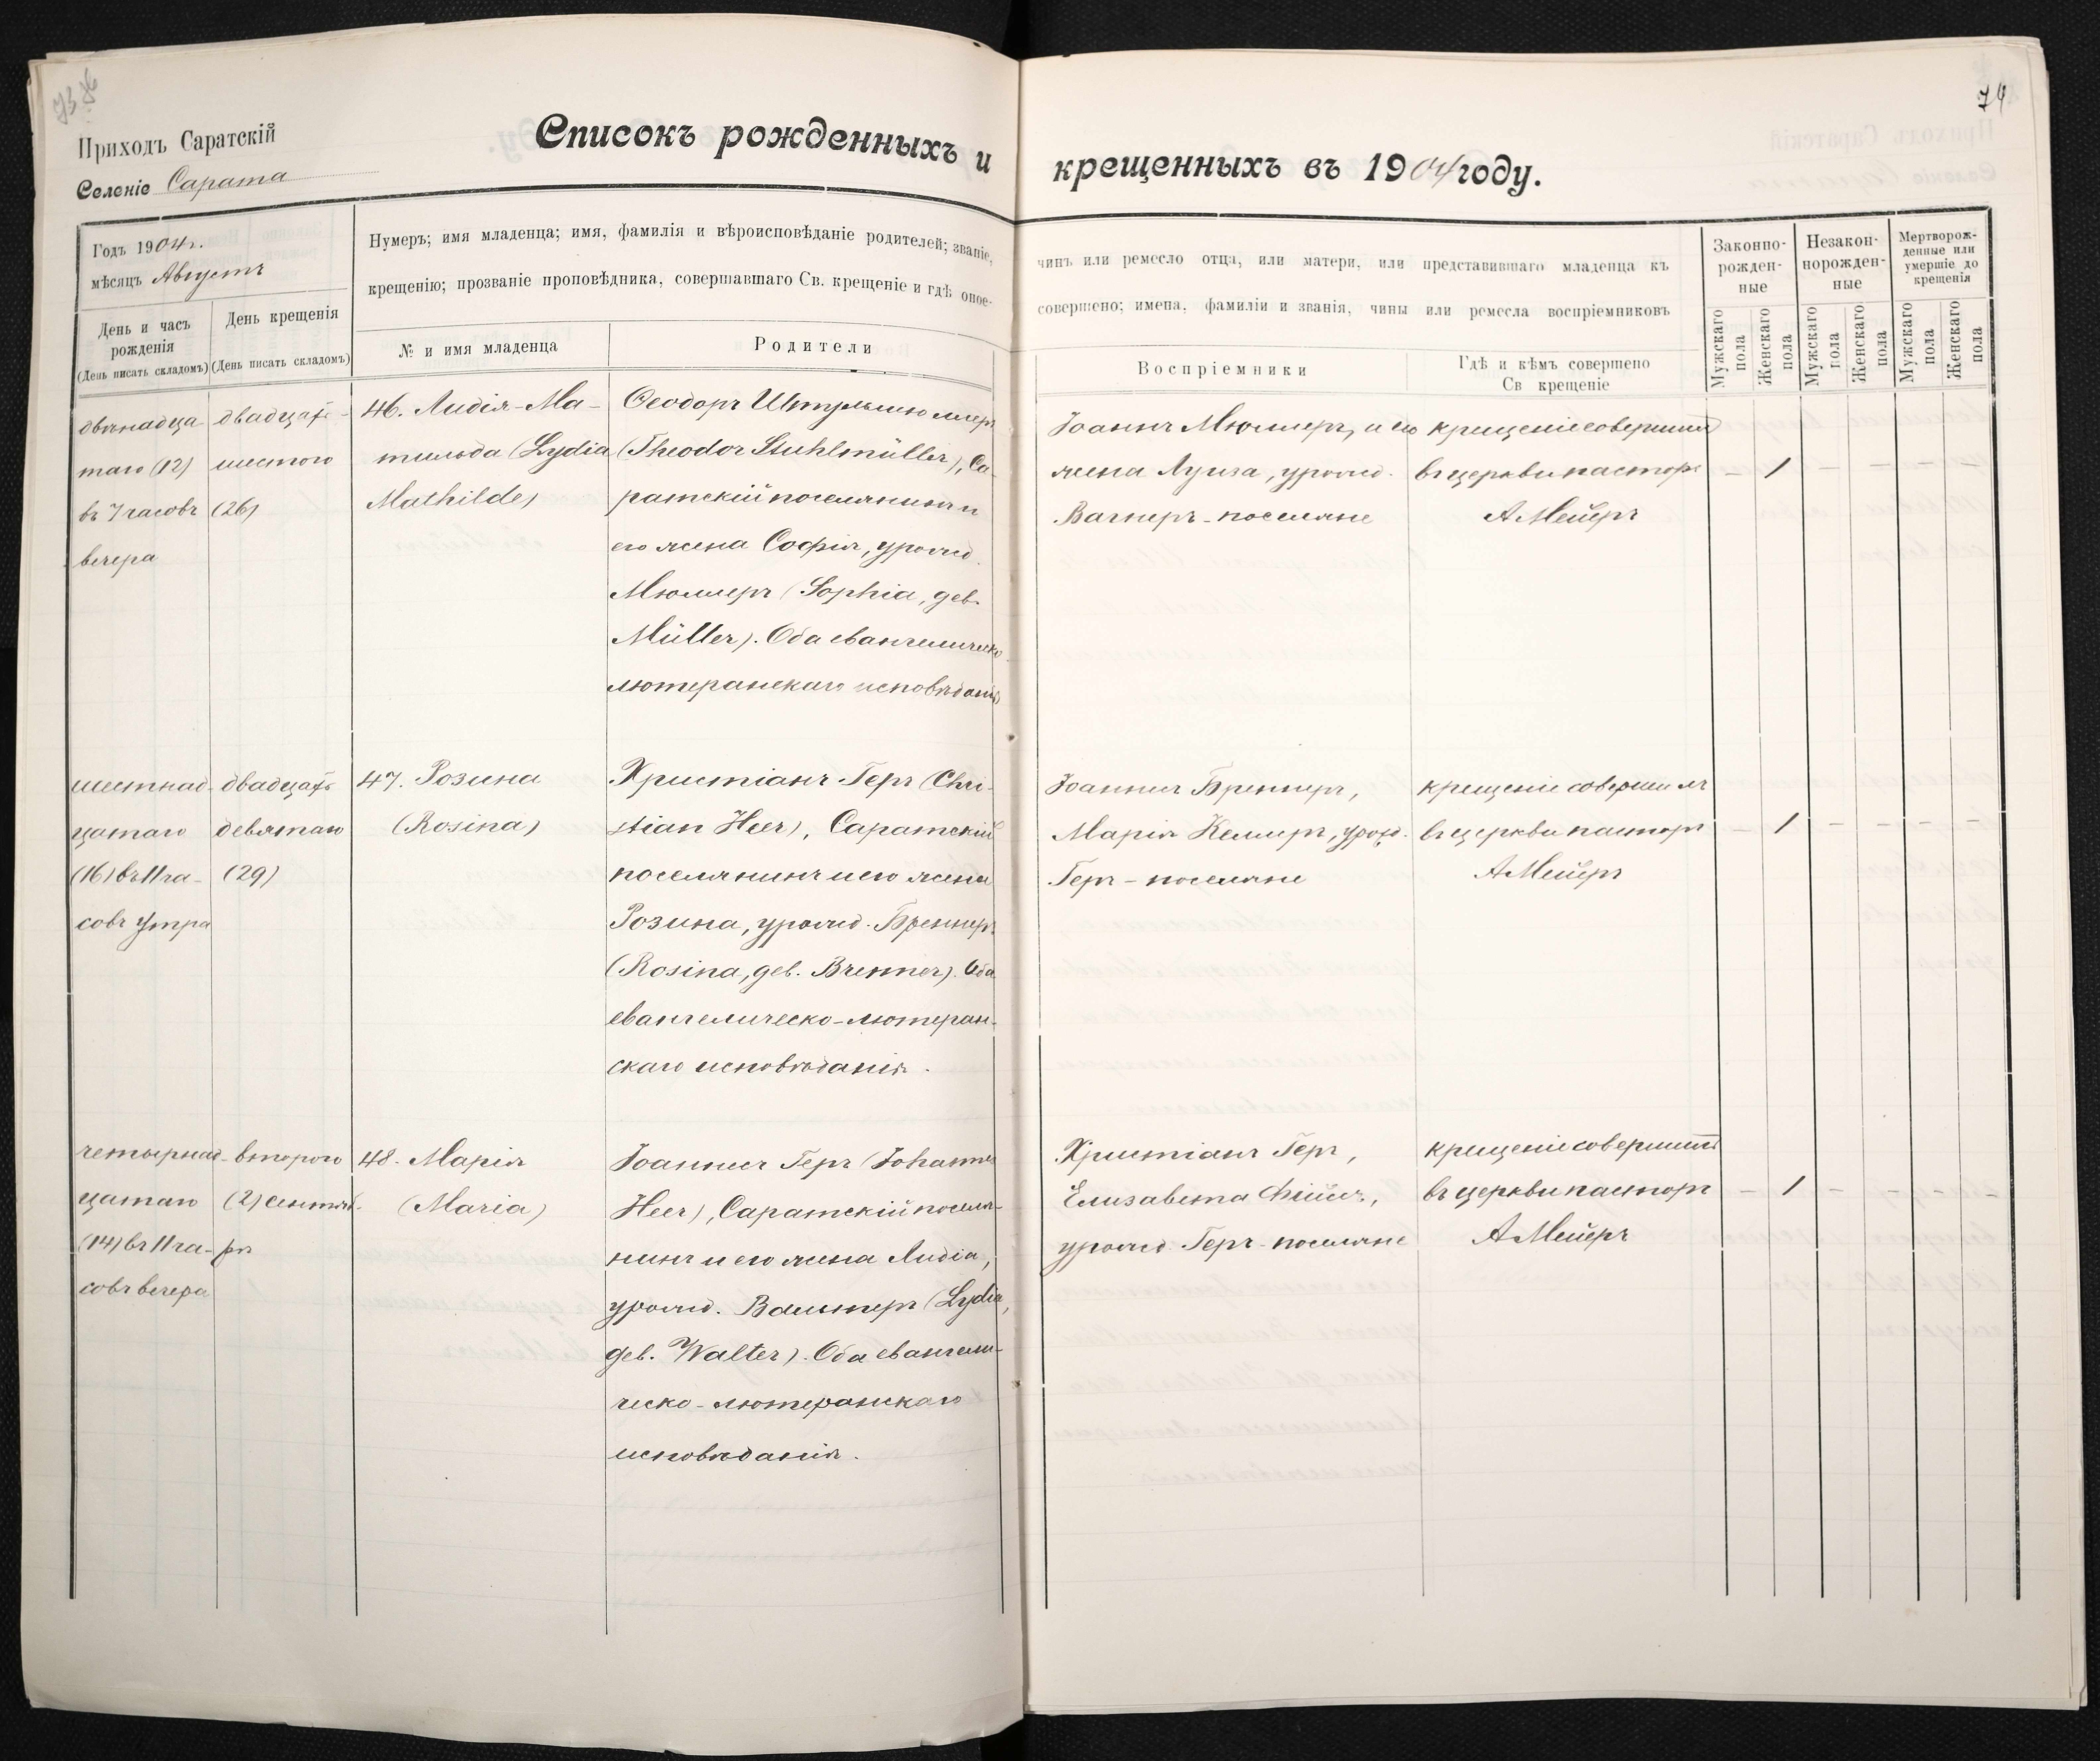 74
Приходъ Саратскій
Селеніе Сарата
Списокъ рожденныхъ и крещенныхъ въ 1904 году.
Годъ 1904 г.
мѣсяцъ Августъ
День и часъ
рожденія
(День писать складомъ)
День крещенія
(День писать складомъ)
Нумеръ; имя младенца; имя, фамилія и вѣроисповѣданіе родителей; званіе,
крещенію; прозваніе проповѣдника, совершавшаго Св. крещеніе и гдѣ оное-
№ и имя младенца
Родители
чинъ или ремесло отца, или матери, или представившаго младенца къ
совершено; имена, фамиліи и званія, чины или ремесла воспріемниковъ
Воспріемники
Гдѣ и кѣмъ совершено
Св крещеніе
Законно-
рожден-
ные
Незакон-
норожден-
ные
Мертворож-
денные или
умершіе до
крещенія
Мужскаго
пола
Женскаго
пола
Мужскаго
пола
Женскаго
пола
Мужскаго
пола
Женскаго
пола
двѣнадца
таго (12)
въ 7 часовъ
вечера
двадцать-
шестого
(26)
46. Лидія-Ма-
тильда (Lydia
Mathilde)
Ѳеодоръ Штульмюллеръ
(Theodor Stuhlmüller), Са-
ратскій поселянинъ и
его жена Софія, урожд.
Мюллеръ (Sophia, geb.
Müller). Оба евангелическо
лютеранскаго исповѣданія
Іоаннъ Мюллеръ, и его
жена Луиза, урожд.
Вагнеръ - поселяне
крещеніе совершилъ
въ церкви пасторъ
А Мейеръ
— 1 — — — —
шестнад-
цатаго
(16) въ 11 ча-
совъ утра
двадцать
девятаго
(29)
47. Розина
(Rosina)
Христіанъ Геръ (Chri-
stian Heer), Саратскій
поселянинъ и его жена
Розина, урожд. Бреннеръ
(Rosina, geb. Brenner). Оба
евангелическо-лютеран-
скаго исповѣданія.
Іоаннесъ Бреннеръ,
Марія Келлеръ, урожд.
Геръ - поселяне
крещеніе совершилъ
въ церкви пасторъ
А Мейеръ
— 1 — — — —
четырнад-
цатаго
(14) въ 11 ча-
совъ вечера
второго
(2) сентяб-
ря
48. Марія
(Maria)
Іоаннесъ Геръ (Johannes
Heer), Саратскій поселя-
нинъ и его жена Лидія,
урожд. Вальтеръ (Lydia,
geb. Walter). Оба евангели-
ческо-лютеранскаго
исповѣданія.
Христіанъ Геръ,
Елизавета
урожд. Геръ - поселяне
крещеніе совершилъ
въ церкви пасторъ
А Мейеръ
— 1 — — — —